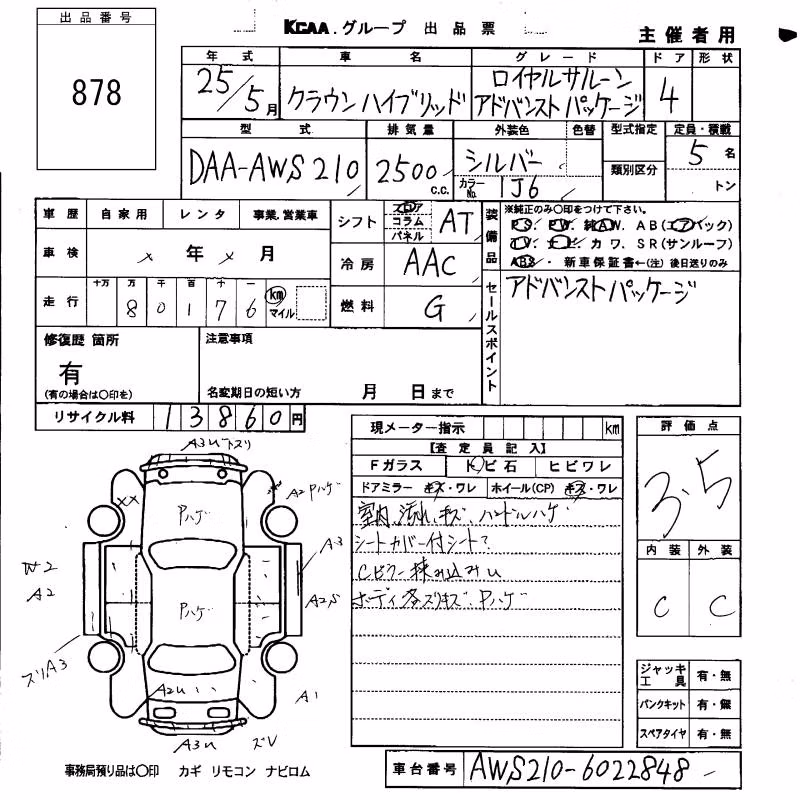 出品番号
878
KCAA.グループ 出品票
主催者用
年式 車名 グレード ドア 形状
25/5月 クラウンハイブリッド ロイヤルサルーン アドバンストパッケージ 4
型式 排気量 外装色 色替 型式指定 定員・積載
DAA-AWS210 2500c.c. シルバー 5名
カラーNo. 1J6 類別区分 トン
車歴 自家用 レンタ 事業,営業車
シフト フロア コラム パネル AT
装備品
※純正のみ〇印をつけて下さい。
PS. PW. 純AW. AB(エアバック)
TV. ナビ カワ. SR(サンルーフ)
ABS・新車保証書←(注)後日送りのみ
車検 年 月
冷房 AAC
走行 十万 万 千 百 十 一
80176 km マイル
燃料 G
セールスポイント
アドバンストパッケージ
修復歴 箇所
有
(有の場合は〇印を)
注意事項
名変期日の短い方 月 日まで
リサイクル料 13860円
現メーター指示 km
【査定員記入】
Fガラス トビ石 ヒビワレ
ドアミラー キズ・ワレ ホイール(CP) キズ・ワレ
室内 汚れ、キズ、ハンドルハゲ
シートカバー付シート?
Cピラー挟み込みU
ボディ各ズリキズ.Pハゲ
評価点
3.5
内装 外装
C C
A3U ズリ
XX
A2 Pハゲ
Pハゲ
A3
W2
A2
A2,S
Pハゲ
ズリA3
A2U
A1
A3U
ズV
ジャッキ工具 有・無
パンクキット 有・無
スペアタイヤ 有・無
事務局預り品は〇印 カギ リモコン ナビロム
車台番号 AWS210-6022848